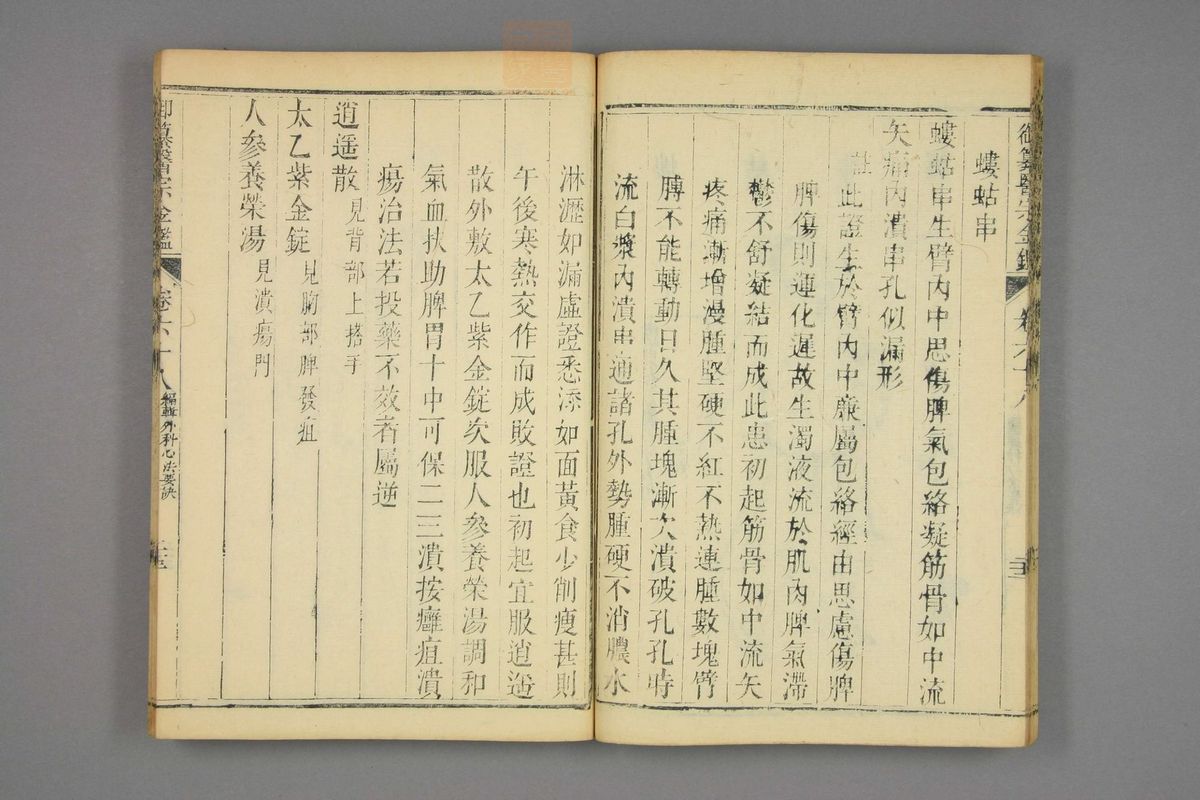 御纂醫宗金鑑 卷六十八
螻蛄串
螻蛄串生臂內中思傷脾氣包絡凝筋骨如中流
矢痛內潰串孔似漏形
註此證生於臂內中廉屬包絡經由思慮傷脾
脾傷則運化遲故生濁液流於肌肉脾氣滯
鬱不舒凝結而成此患初起筋骨如中流矢
疼痛漸增漫腫堅硬不紅不熱連腫數塊臂
膊不能轉動日久其腫塊漸次潰破孔孔時
流白漿內潰串通諸孔外勢腫硬不消膿水
淋瀝如漏虛證悉添如面黃食少削瘦甚則
午後寒熱交作而成敗證也初起宜服逍遙
散外敷太乙紫金錠次服人參養榮湯調和
氣血扶助脾胃十中可保二三潰按癰疽潰
瘍治法若投藥不效者屬逆
逍遙散 見背部上搭手
太乙紫金錠 見胸部脾發疽
人參養榮湯 見潰瘍門
御纂醫宗金鑑 卷六十八 編輯外科心法要訣